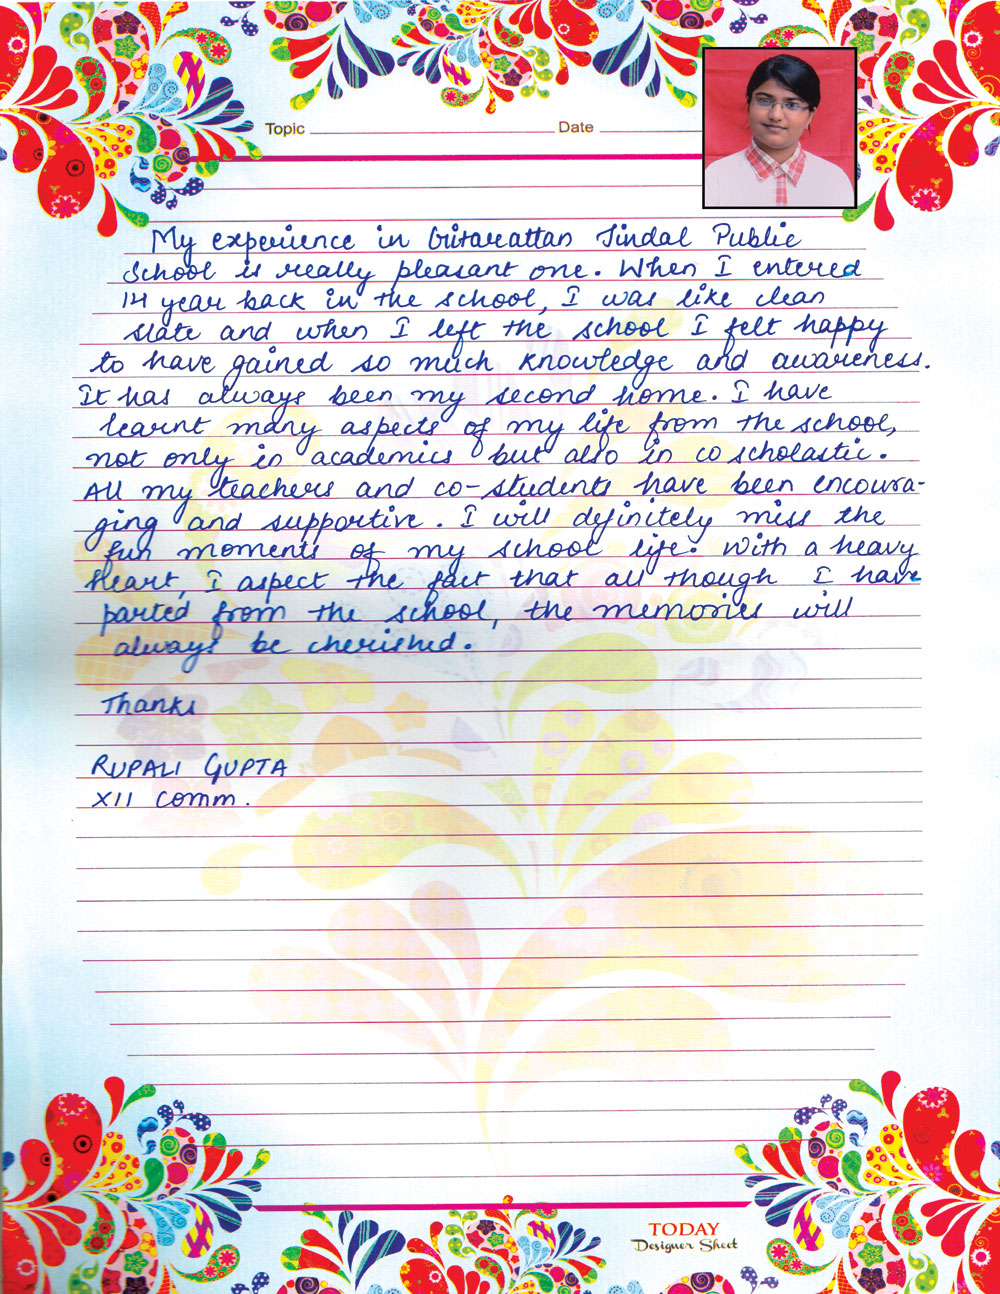 Topic Date
My experience in Gitarattan Jindal Public
School is really pleasant one. When I entered
14 year back in the school, I was like clean
slate and when I left the school I felt happy
to have gained so much knowledge and awareness.
It has always been my second home. I have
learnt many aspects of my life from the school,
not only in academics but also in co scholastic.
All my teachers and co-students have been encoura-
ging and supportive. I will definitely miss the
fun moments of my school life. With a heavy
heart, I aspect the fact that all though I have
parted from the school, the memories will
always be cherished.
Thanks
RUPALI GUPTA
XII Comm.
TODAY
Designer Sheet